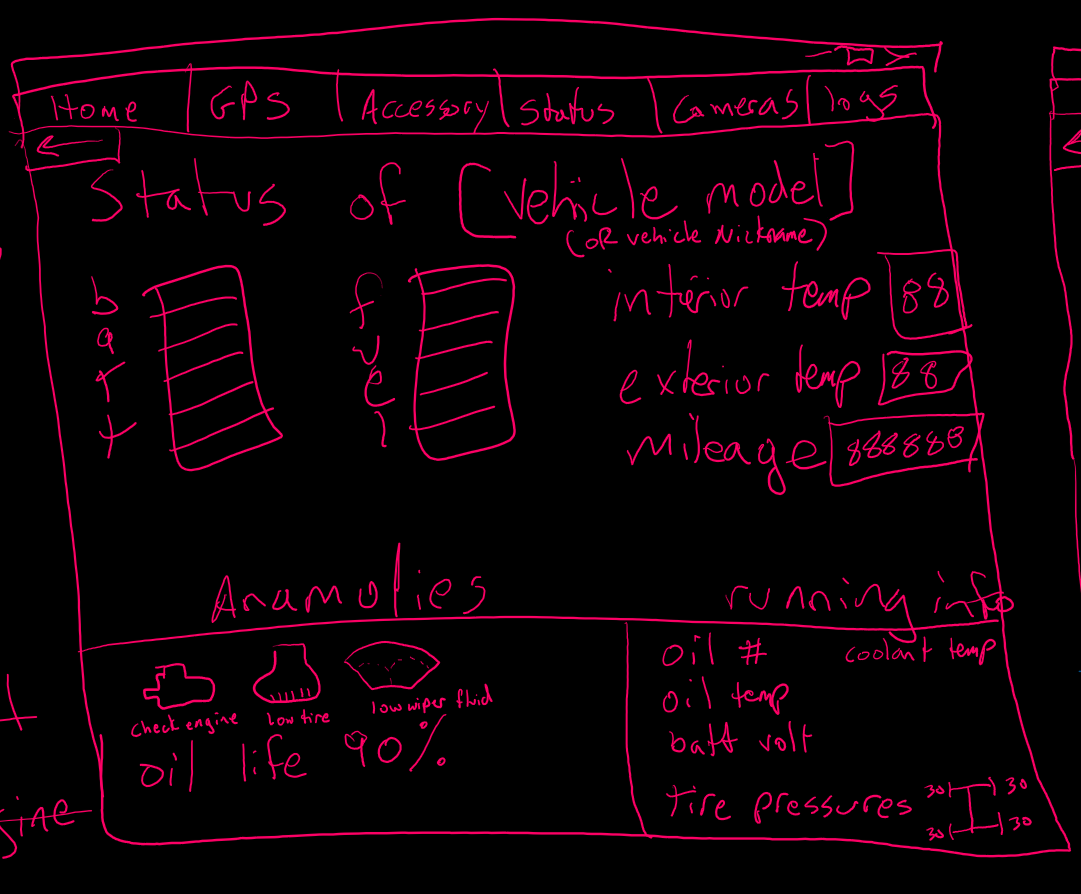 Home GPS Accessory Status Cameras logs
Status of [vehicle model]
(OR vehicle Nickname)
batt
fuel
interior temp 88
exterior temp 88
mileage 888888
Anamolies
running info
check engine
low tire
low wiper fluid
oil life 90%
oil #
coolant temp
oil temp
batt volt
tire pressures
30 30
30 30